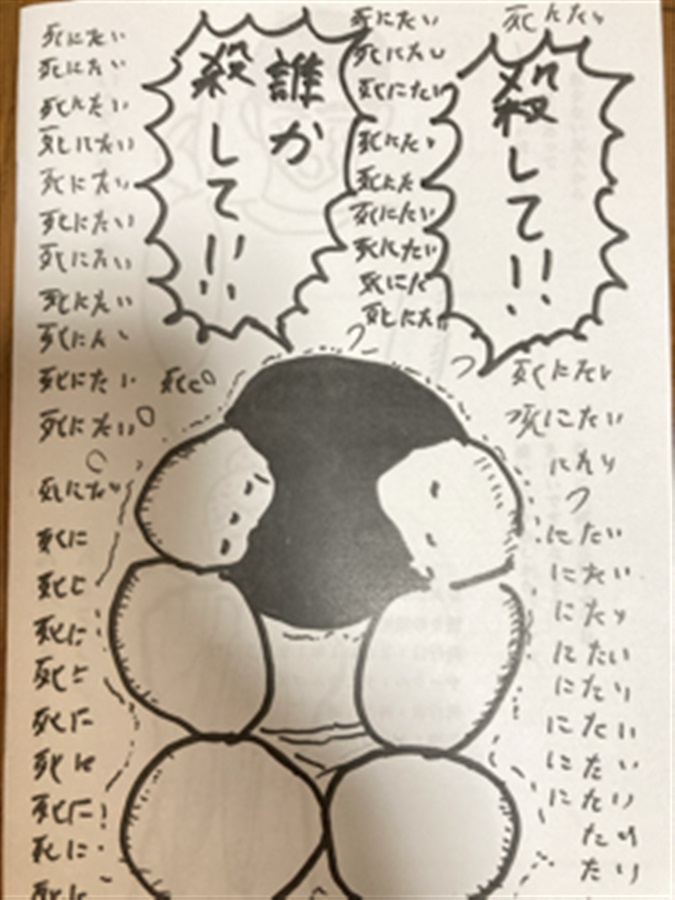 死にたい
殺して!!
誰か
殺して!!
死にたい
死にたい
死にたい
死にたい
死にた
死にたい
死にたい
死にた
死にた
死にたい
死にたい
死にたい
死にたい
死にたい
死にたい
死にたい
死にたい
死にたい
死にたい
死にたい
死にたい
死にたい
死に
死に
死に
死に
死に
死に
死に
死に
死に
死にたい
死にたい
にたい
にたい
にたい
にたい
にたい
にたい
にたい
にたい
にたい
たい
たい